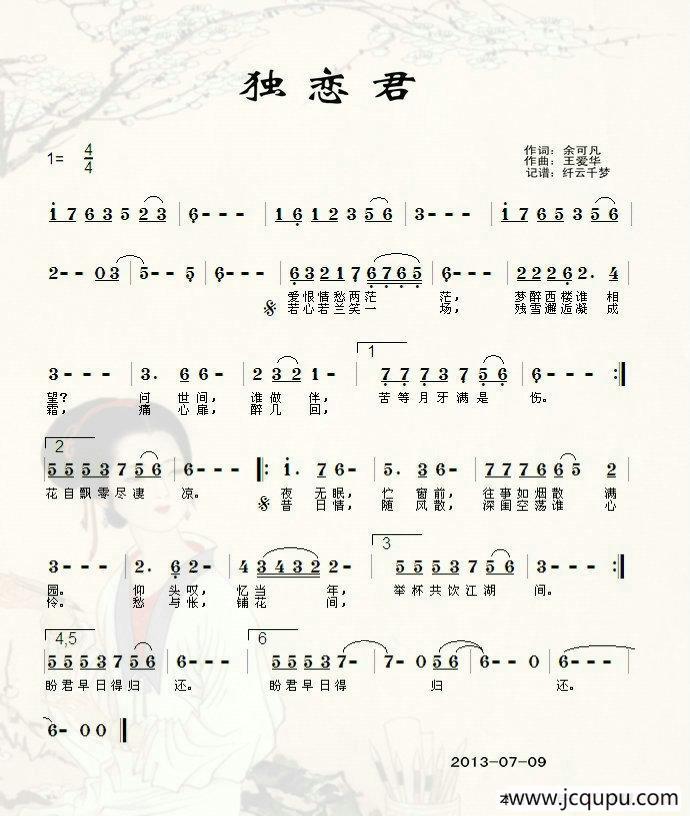 独恋君
1= 4/4
作词：余可凡
作曲：王爱华
记谱：纤云千梦
1 7 6 3 5 2 3 | 6 - - - | 1 6 1 2 3 5 6 | 3 - - - | 1 7 6 5 3 5 6 |
2 - - 0 3 | 5 - - 5 | 6 - - - | 6 3 2 1 7 6 7 6 5 | 6 - - - | 2 2 2 6 2. 4
爱恨情愁两茫 茫， 梦醉西楼谁 相
若心若兰笑一 场， 残雪邂逅凝 成
3 - - - | 3. 6 6 - | 2 3 2 1 - | 1 7 7 7 3 7 5 6 | 6 - - - :|
望？ 问 世间， 谁做 伴， 苦等月牙满是 伤。
霜， 痛 心扉， 醉几 回，
2 5 5 5 3 7 5 6 | 6 - - - |: 1. 7 6 - | 5. 3 6 - | 7 7 7 6 6 5 2
花自飘零尽凄 凉。 夜 无眠， 伫 窗前， 往事如烟散 满
昔 日情， 随 风散， 深闺空荡谁 心
3 - - - | 2. 6 2 - | 3 4 3 2 2 - | 3 5 5 5 3 7 5 6 | 3 - - - :|
园。 仰 头叹， 忆当 年， 举杯共饮江湖 间。
怜。 愁 与怅， 铺花 间，
4,5 5 5 5 3 7 5 6 | 6 - - | 6 5 5 5 3 7 - | 7 - 0 5 6 | 6 - - 0 | 6 - - -
盼君早日得归 还。 盼君早日得 归 还。
6 - 0 0 ‖
2013-07-09
www.jcqupu.com